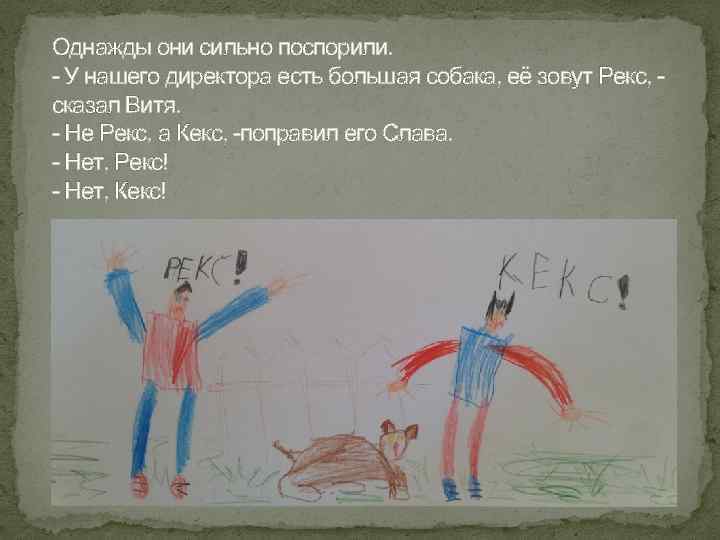 Однажды они сильно поспорили.
- У нашего директора есть большая собака, её зовут Рекс, -
сказал Витя.
- Не Рекс, а Кекс, -поправил его Слава.
- Нет, Рекс!
- Нет, Кекс!
РЕКС!
КЕКС!